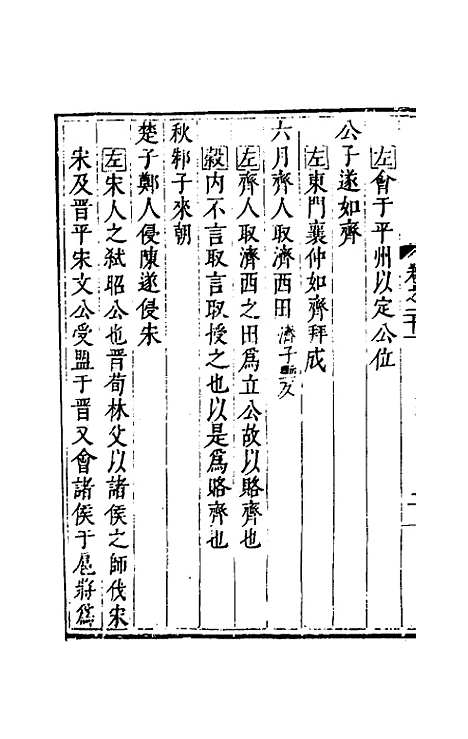 左會于平州以定公位
公子遂如齊
左東門襄仲如齊拜成
六月齊人取濟西田濟子反
左齊人取濟西之田爲立公故以賂齊也
穀内不言取言取授之也以是爲賂齊也
秋邾子來朝
楚子鄭人侵陳遂侵宋
左宋人之弑昭公也晉荀林父以諸侯之師伐宋
宋及晉平宋文公受盟于晉又會諸侯于扈將爲